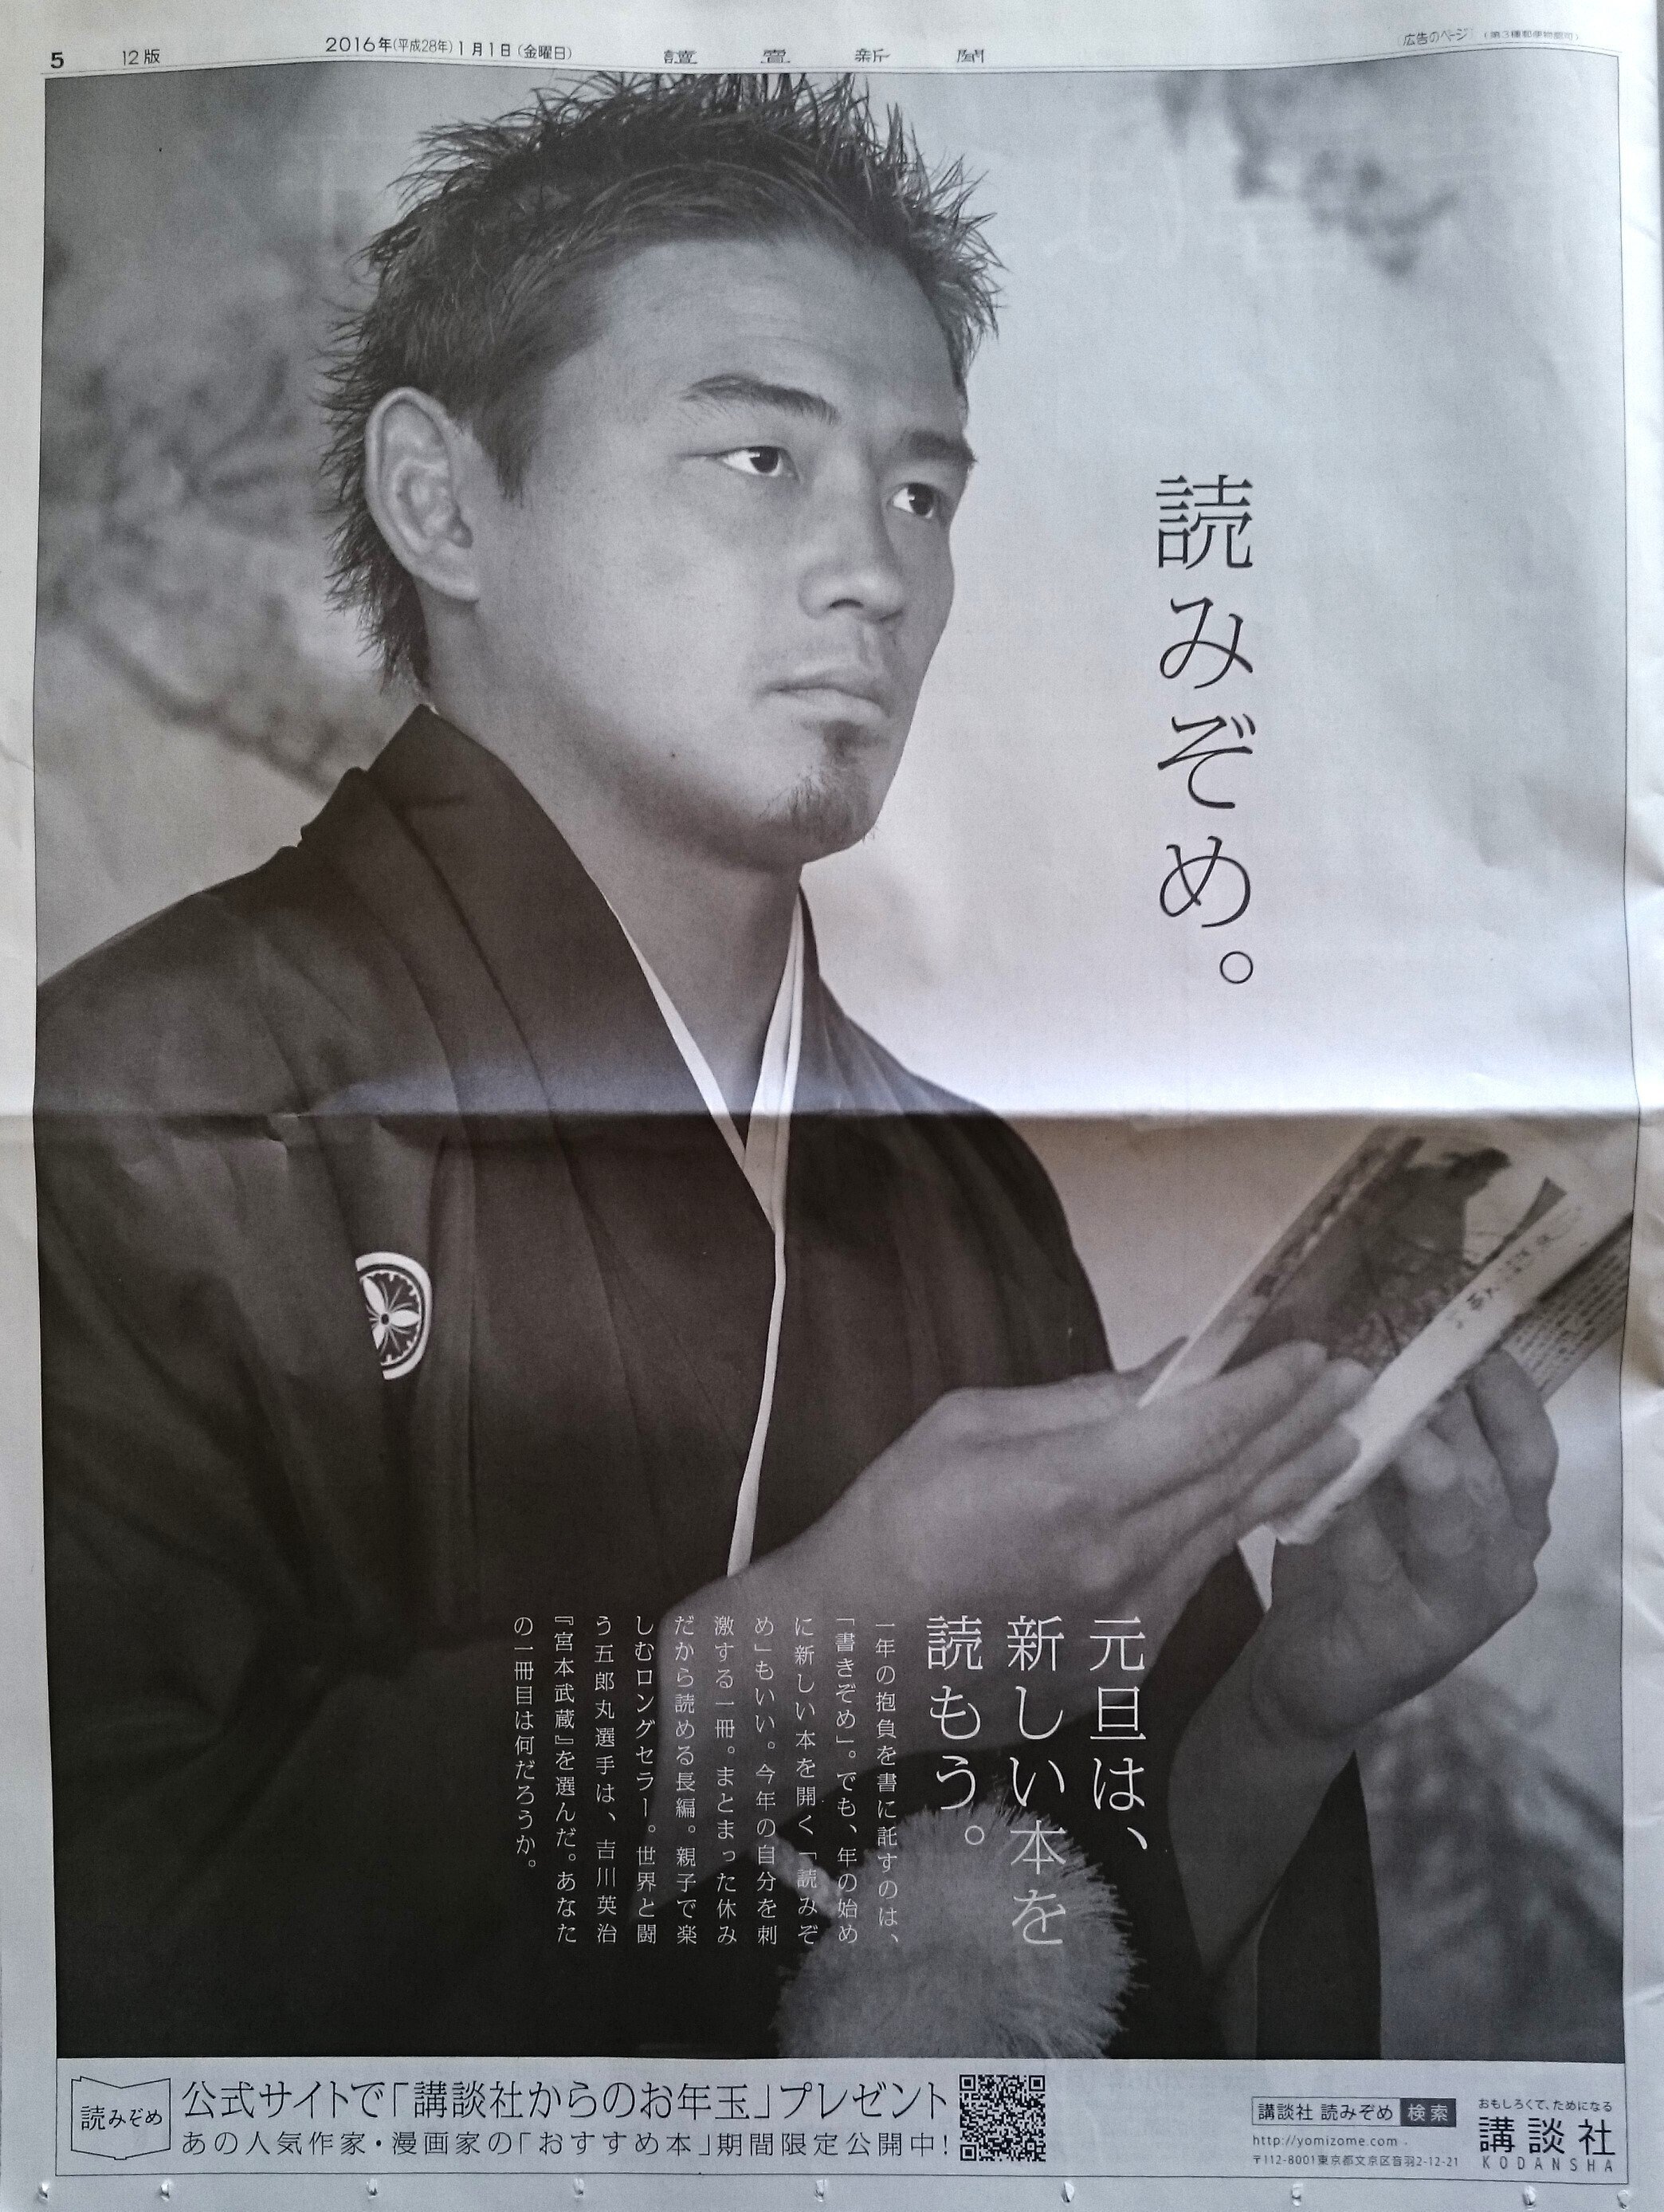 5
12版
2016年(平成28年)1月1日(金曜日)
讀賣新聞
広告のページ
(第3種郵便物認可)
読みぞめ。
元旦は、
新しい本を
読もう。
一年の抱負を書に託すのは、
「書きぞめ」。でも、年の始め
に新しい本を開く「読みぞ
め」もいい。今年の自分を刺
激する一冊。まとまった休み
だから読める長編。親子で楽
しむロングセラー。世界と闘
う五郎丸選手は、吉川英治
『宮本武蔵』を選んだ。あなた
の一冊目は何だろうか。
読みぞめ
公式サイトで「講談社からのお年玉」プレゼント
あの人気作家・漫画家の「おすすめ本」期間限定公開中!
講談社 読みぞめ 検索
http://yomizome.com
〒112-8001東京都文京区音羽2-12-21
おもしろくて、ためになる
講談社
KODANSHA